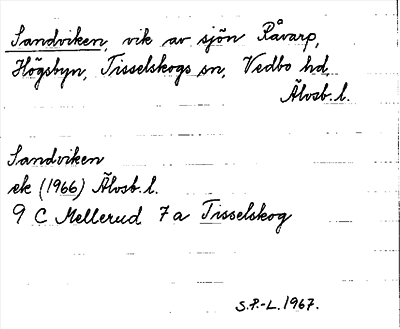 Sandviken, vik av sjön Råvarp,
Högsbyn, Tisselskogs sn, Vedbo hd,
Älvsb. l.
Sandviken
ek (1966) Älvsb. l.
9 C Mellerud 7a Tisselskog
S.P.-L. 1967.